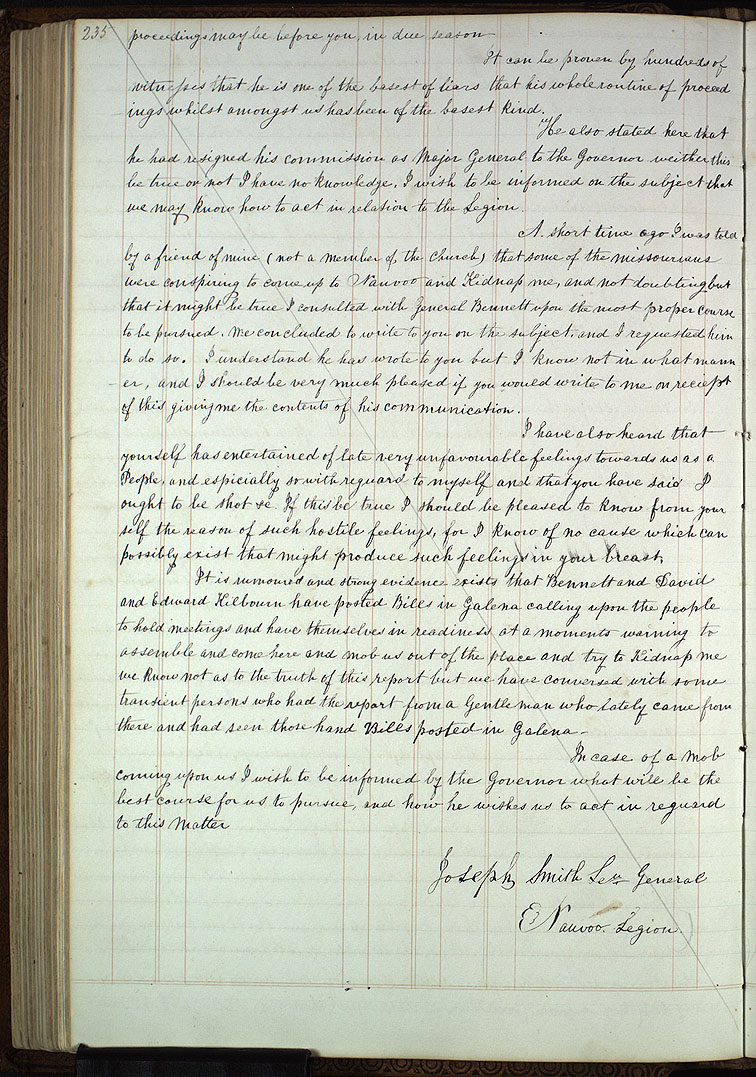 235
proceedings may be before you, in due season—
It can be proven by hundreds of
witnesses that he is one of the basest of liars that his whole routine of proceed
ings whilst amongst us has been of the basest kind.
He also stated here that
he had resigned his commission as Major General to the Governor weither this
be true or not I have no knowledge, I wish to be informed on the subject that
we may know how to act in relation to the Legion.
A short time ago I was told
by a friend of mine (not a member of the Church) that some of the missourians
were conspiring to come up to Nauvoo and Kidnap me, and not doubting but
that it might be true I consulted with General Bennett upon the most proper course
to be pursued. We concluded to write to you on the subject, and I requested him
to do so. I understand he has wrote to you but I know not in what mann
er, and I should be very much pleased if you would write to me on reciept
of this giving me the contents of his communication.
I have also heard that
yourself has entertained of late very unfavourable feelings towards us as a
People, and espicially so with reguard to myself and that you have said I
ought to be shot &c. If this be true I should be pleased to know from your
self the reason of such hostile feelings, for I know of no cause which can
possibly exist that might produce such feelings in your breast.
It is rumoured and strong evidence exists that Bennett and David
and Edward Kilbourn have posted Bills in Galena calling upon the people
to hold meetings and have themselves in readiness at a moments warning to
assemble and come here and mob us out of the place and try to Kidnap me
we know not as to the truth of this report but we have conversed with some
transient persons who had the report from a Gentleman who lately came from
there and had seen those hand Bills posted in Galena—
In case of a mob
coming upon us I wish to be informed by the Governor what will be the
best course for us to pursue, and how he wishes us to act in reguard
to this Matter
Joseph Smith General
Nauvoo Legion.